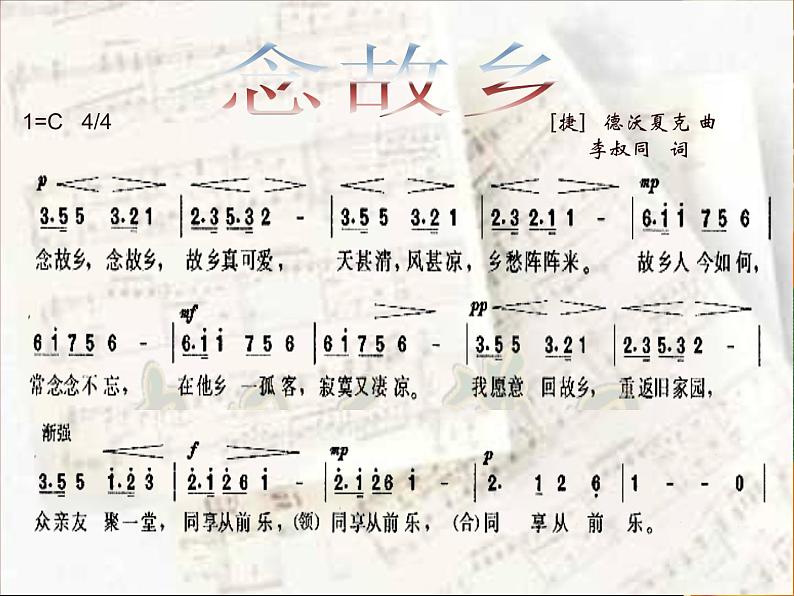 念故乡
1=C 4/4
[捷] 德沃夏克 曲
李叔同 词
p mp
3·5 5 3·2 1 | 2·3 5·3 2 - | 3·5 5 3·2 1 | 2·3 2·1 1 - | 6·i i 7 5 6 |
念故乡，念故乡， 故乡真可爱， 天甚清，风甚凉，乡愁阵阵来。 故乡人今如何，
mf pp
6 i 7 5 6 - | 6·i i 7 5 6 | 6 i 7 5 6 - | 3·5 5 3·2 1 | 2·3 5·3 2 - |
常念念不忘， 在他乡 一孤客，寂寞又凄凉。 我愿意 回故乡， 重返旧家园，
渐强 f mp p
3·5 5 i·2 3 | 2·i 2 6 i - | 2·i 2 6 i - | 2· 1 2 6 | 1 - - 0 |
众亲友 聚一堂，同享从前乐，(领)同享从前乐，(合)同 享从 前 乐。